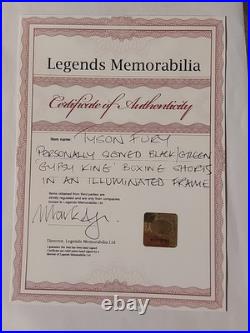 Legends Memorabilia
Certificate of Authenticity
Item name: TYSON FURY
PERSONALLY SIGNED BLACK/GREEN
'GYPSY KING' BOXING SHORTS
IN AN ILLUMINATED FRAME
Items obtained from third parties are
strictly regulated and are only from companies
Director, Legends Memorabilia Ltd